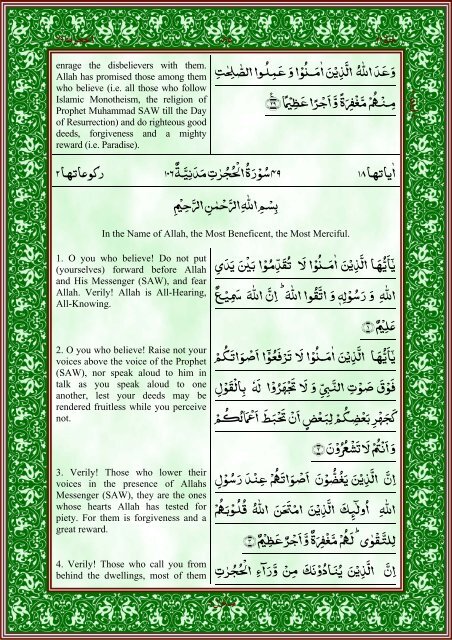 enrage the disbelievers with them.
Allah has promised those among them
who believe (i.e. all those who follow
Islamic Monotheism, the religion of
Prophet Muhammad SAW till the Day
of Resurrection) and do righteous good
deeds, forgiveness and a mighty
reward (i.e. Paradise).
وَعَدَ اللّٰهُ الَّذِيْنَ اٰمَنُوْا وَعَمِلُوا الصّٰلِحٰتِ
مِنْهُمْ مَّغْفِرَةً وَّاَجْرًا عَظِيْمًا ۝۲۹
اٰیاتها ۱۸
۴۹ سُوْرَةُ الْحُجُرٰتِ مَدَنِيَّةٌ ۱۰۶
رکوعاتها ۲
بِسْمِ اللّٰهِ الرَّحْمٰنِ الرَّحِيْمِ
In the Name of Allah, the Most Beneficent, the Most Merciful.
1. O you who believe! Do not put
(yourselves) forward before Allah
and His Messenger (SAW), and fear
Allah. Verily! Allah is All-Hearing,
All-Knowing.
يٰٓاَيُّهَا الَّذِيْنَ اٰمَنُوْا لَا تُقَدِّمُوْا بَيْنَ يَدَيِ
اللّٰهِ وَ رَسُوْلِهٖ وَ اتَّقُوا اللّٰهَ ؕ اِنَّ اللّٰهَ سَمِيْعٌ
عَلِيْمٌ ۝۱
2. O you who believe! Raise not your
voices above the voice of the Prophet
(SAW), nor speak aloud to him in
talk as you speak aloud to one
another, lest your deeds may be
rendered fruitless while you perceive
not.
يٰٓاَيُّهَا الَّذِيْنَ اٰمَنُوْا لَا تَرْفَعُوْٓا اَصْوَاتَكُمْ
فَوْقَ صَوْتِ النَّبِيِّ وَ لَا تَجْهَرُوْا لَهٗ بِالْقَوْلِ
كَجَهْرِ بَعْضِكُمْ لِبَعْضٍ اَنْ تَحْبَطَ اَعْمَالُكُمْ
وَ اَنْتُمْ لَا تَشْعُرُوْنَ ۝۲
3. Verily! Those who lower their
voices in the presence of Allahs
Messenger (SAW), they are the ones
whose hearts Allah has tested for
piety. For them is forgiveness and a
great reward.
اِنَّ الَّذِيْنَ يَغُضُّوْنَ اَصْوَاتَهُمْ عِنْدَ رَسُوْلِ
اللّٰهِ اُولٰٓىِٕكَ الَّذِيْنَ امْتَحَنَ اللّٰهُ قُلُوْبَهُمْ
لِلتَّقْوٰى ؕ لَهُمْ مَّغْفِرَةٌ وَّاَجْرٌ عَظِيْمٌ ۝۳
4. Verily! Those who call you from
behind the dwellings, most of them
اِنَّ الَّذِيْنَ يُنَادُوْنَكَ مِنْ وَّرَآءِ الْحُجُرٰتِ